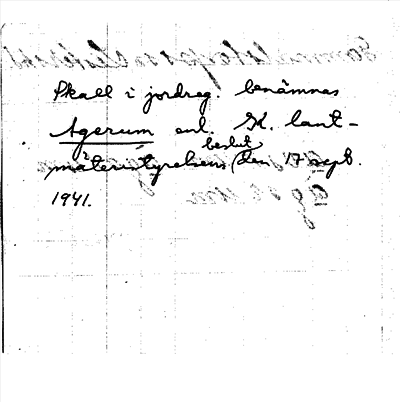 Skall i jordreg. benämnas
Agerum enl. K. lant-
mäteristyrelsens beslut den 17 sept.
1941.